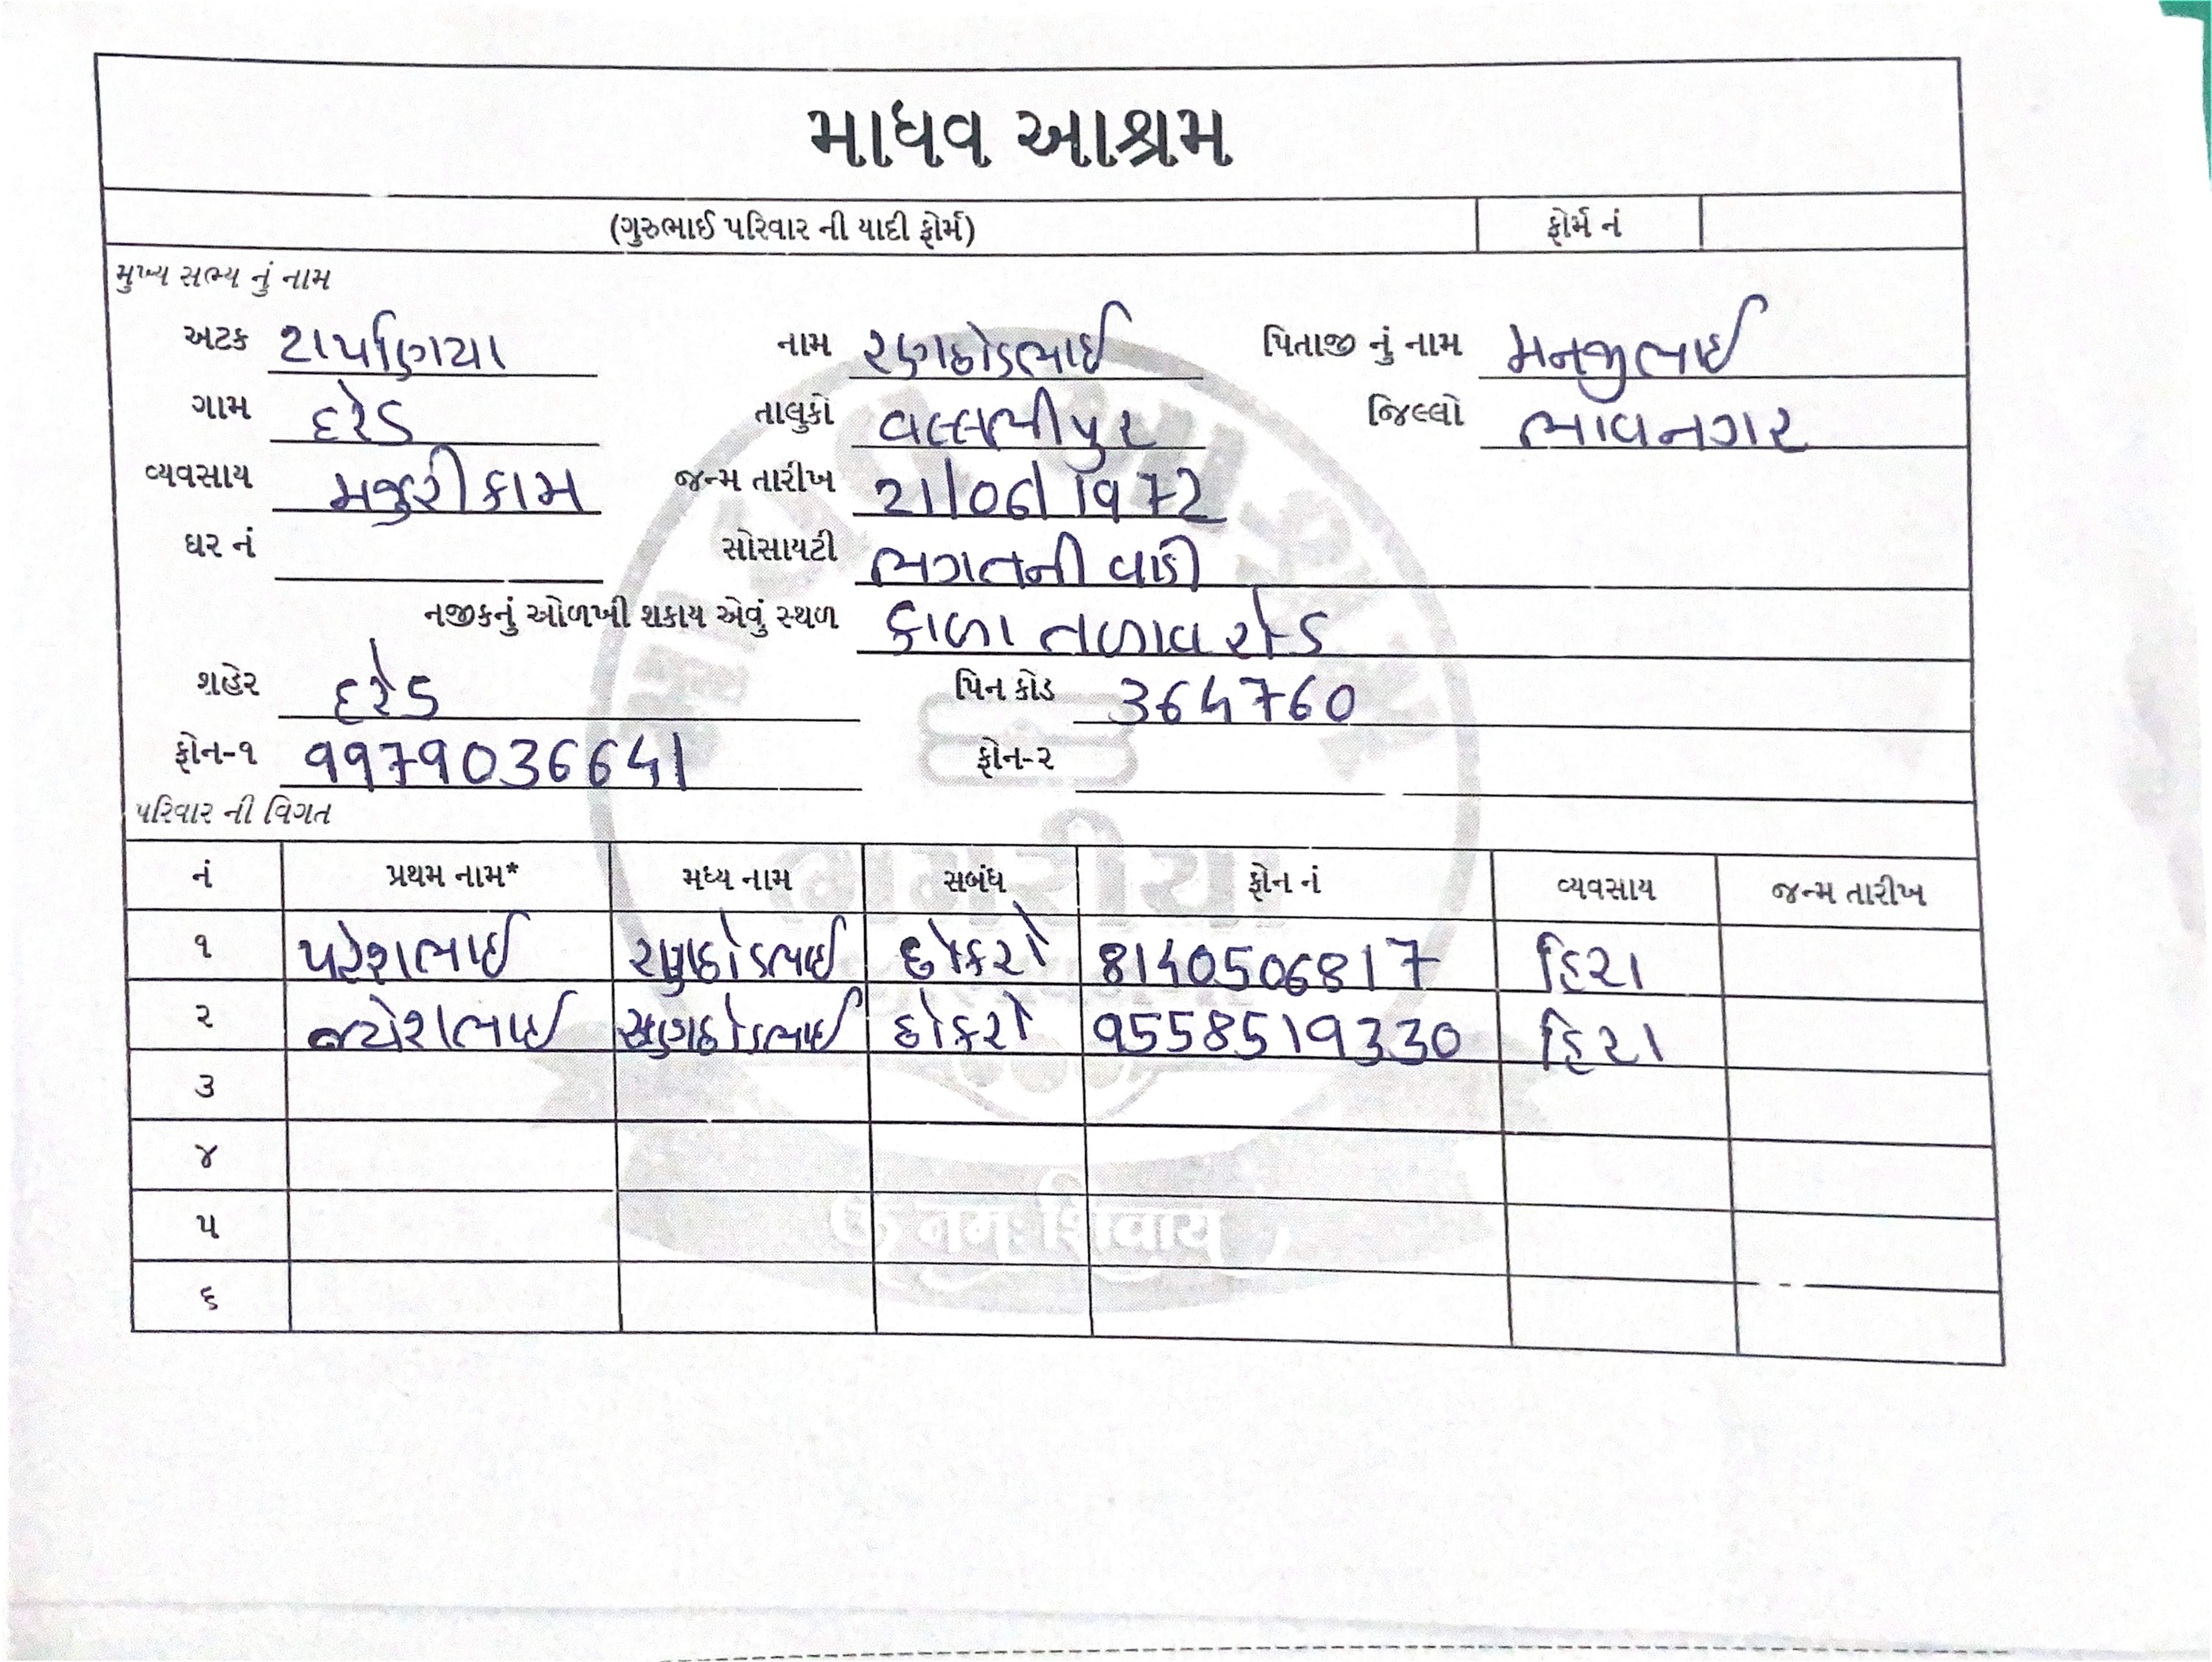 માધવ આશ્રમ
(ગુરુભાઈ પરિવાર ની યાદી ફોર્મ) ફોર્મ નં
મુખ્ય સભ્ય નું નામ
અટક ટાપણિયા નામ રણછોડભાઈ પિતાજી નું નામ મનજીભાઈ
ગામ દરેડ તાલુકો વલ્લભીપુર જિલ્લો ભાવનગર
વ્યવસાય મજુરી કામ જન્મ તારીખ 21/06/1972
ઘર નં સોસાયટી ભગતની વાડી
નજીકનું ઓળખી શકાય એવું સ્થળ કાળા તળાવ રોડ
શહેર દરેડ પિન કોડ 364760
ફોન-૧ 9979036641 ફોન-૨
પરિવાર ની વિગત
નં પ્રથમ નામ* મધ્ય નામ સબંધ ફોન નં વ્યવસાય જન્મ તારીખ
૧ પરેશભાઈ રણછોડભાઈ છોકરો 8140506817 હિરા
૨ જયેશભાઈ રણછોડભાઈ છોકરો 9558519330 હિરા
૩
૪
૫
૬
ॐ नमः शिवाय